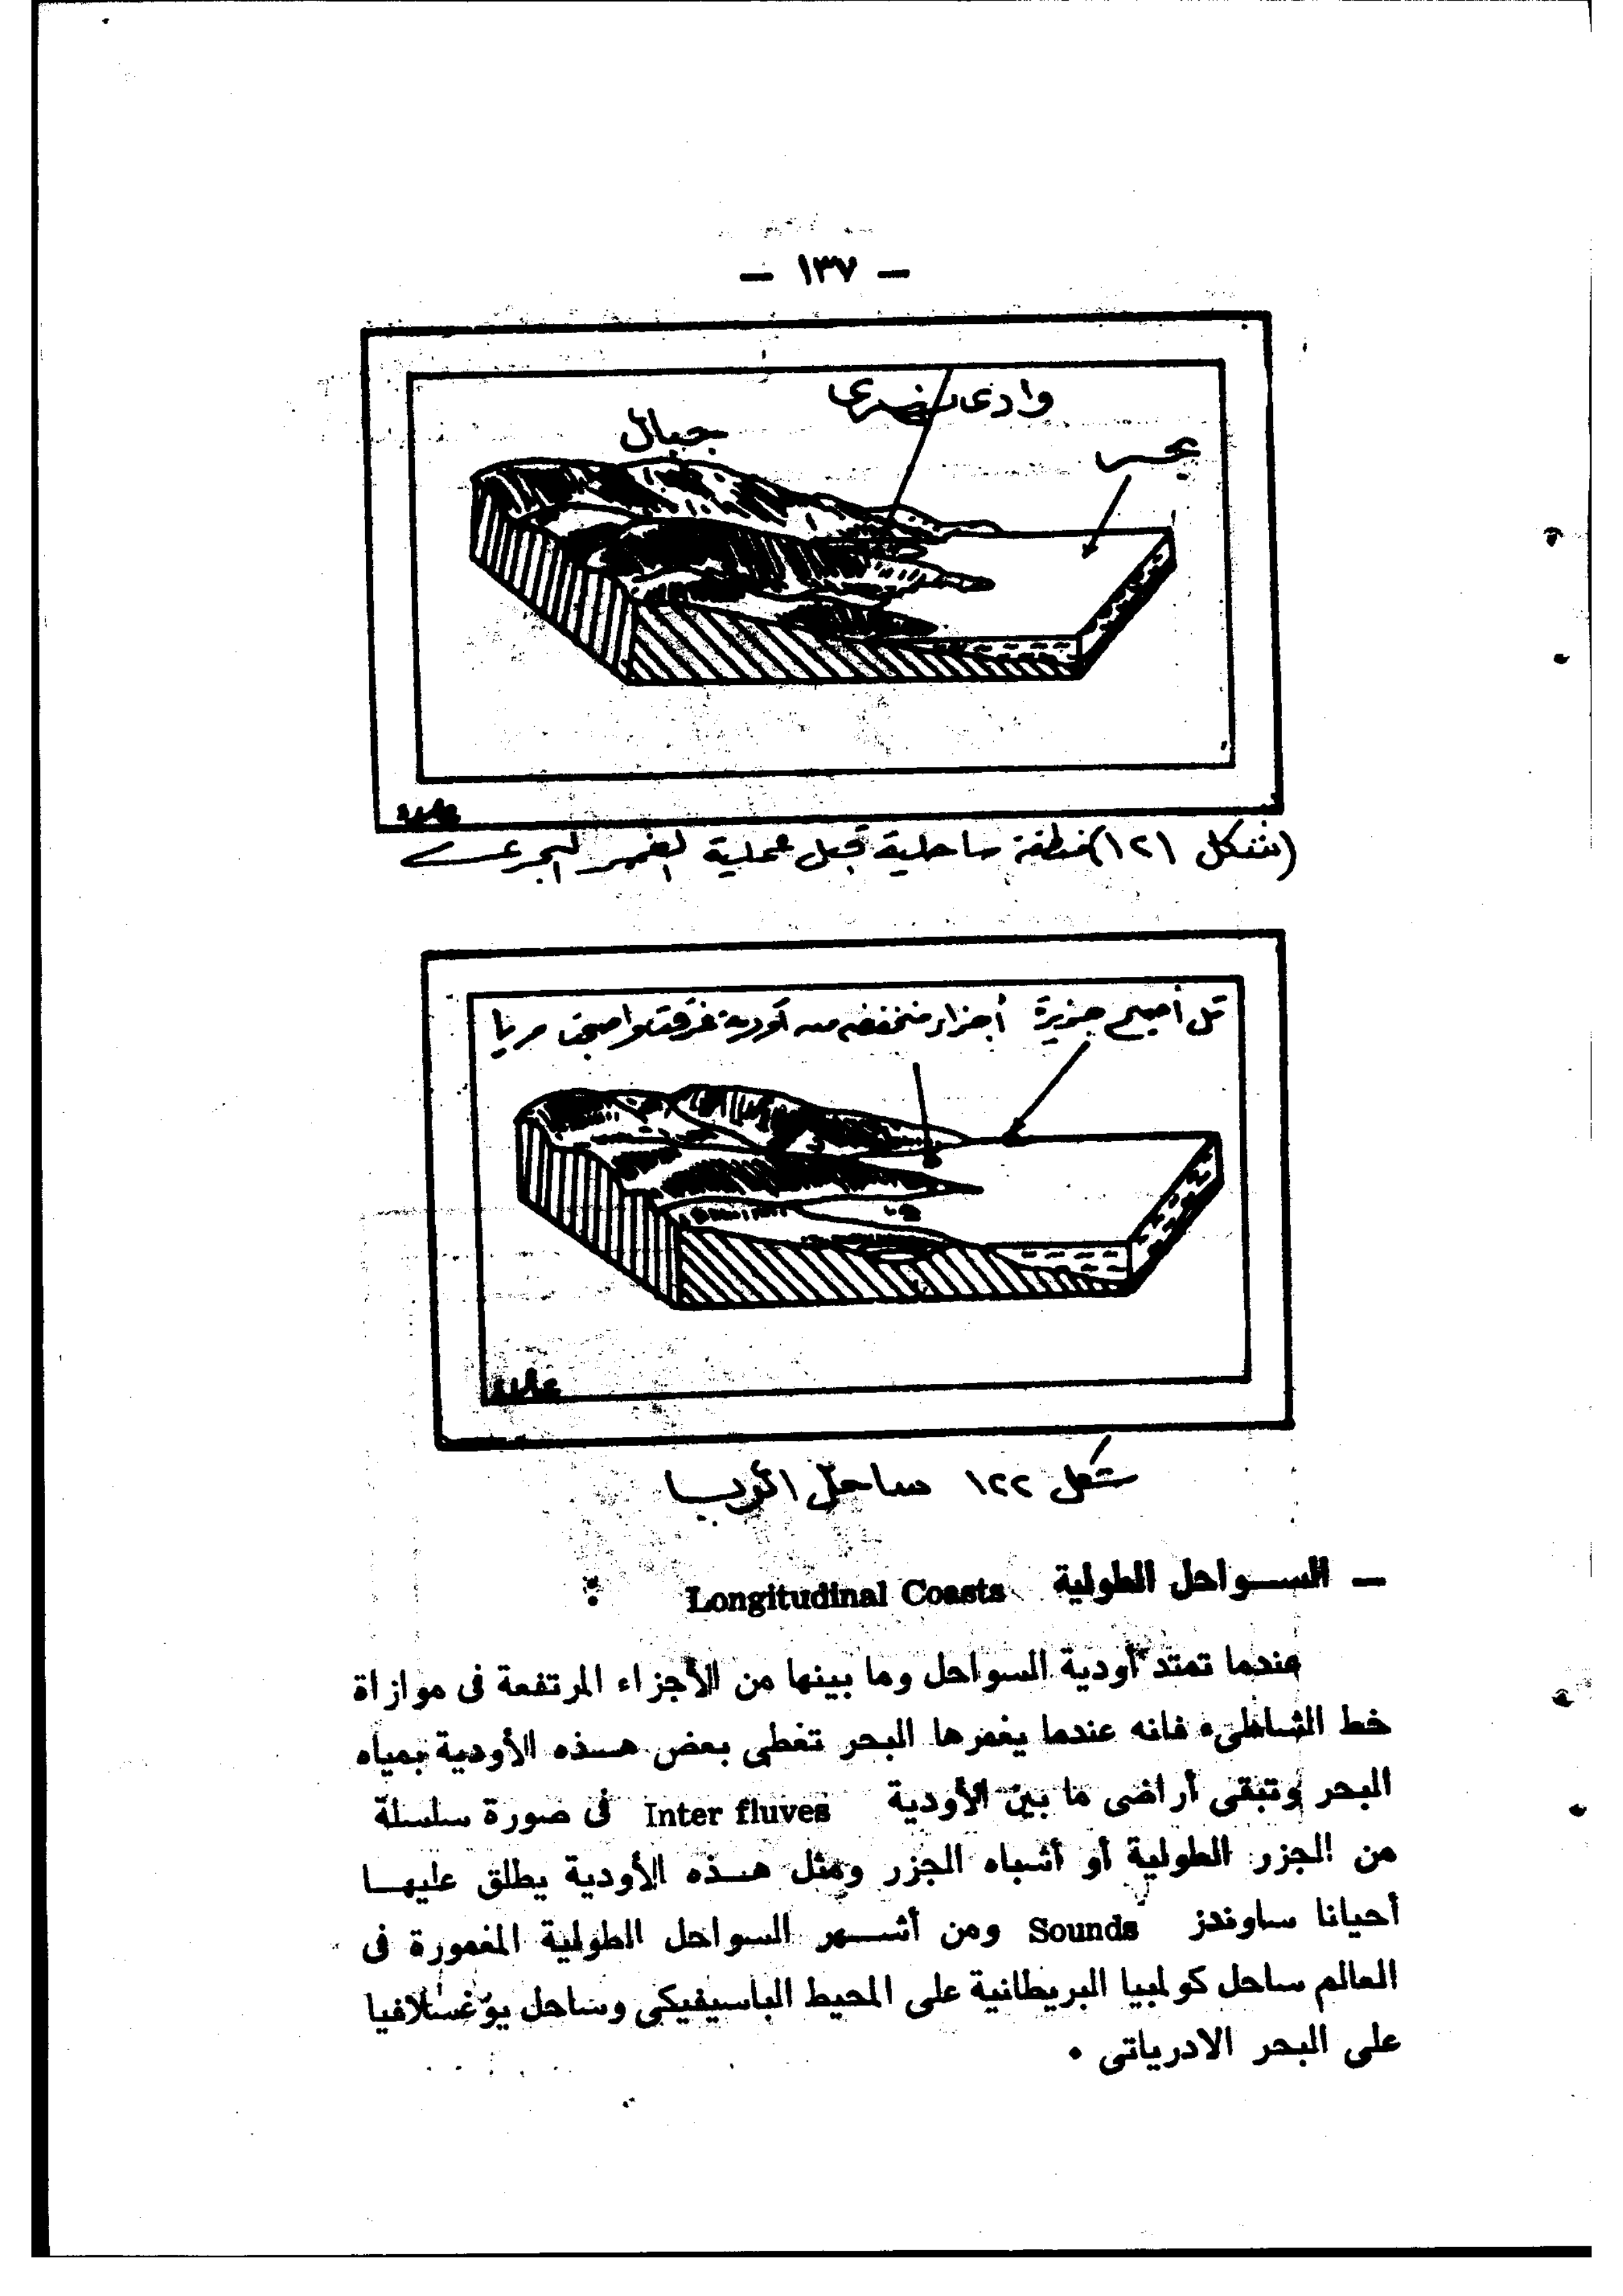 — ١٣٧ —
وادى نهرى
جبال
بحر
(شكل ١٢١) منطقة ساحلية قبل عملية الغمر البحرى
تل أصبح جزيرة أجزاء منخفضة من أودية غرقت وأصبحت ريا
شكل ١٢٢ ساحل الريا
— الســواحل الطولية Longitudinal Coasts :
عندما تمتد أودية السواحل وما بينها من الأجزاء المرتفعة فى موازاة
خط الشاطىء فانه عندما يغمرها البحر تغطى بعض هــذه الأودية بمياه
البحر وتبقى أراضى ما بين الأودية Inter fluves فى صورة سلسلة
من الجزر الطولية أو أشباه الجزر ومثل هــذه الأودية يطلق عليهــا
أحيانا ساوندز Sounds ومن أشــهر السواحل الطولية المغمورة فى
العالم ساحل كولمبيا البريطانية على المحيط الباسيفيكى وساحل يوغسلافيا
على البحر الادرياتى ٠